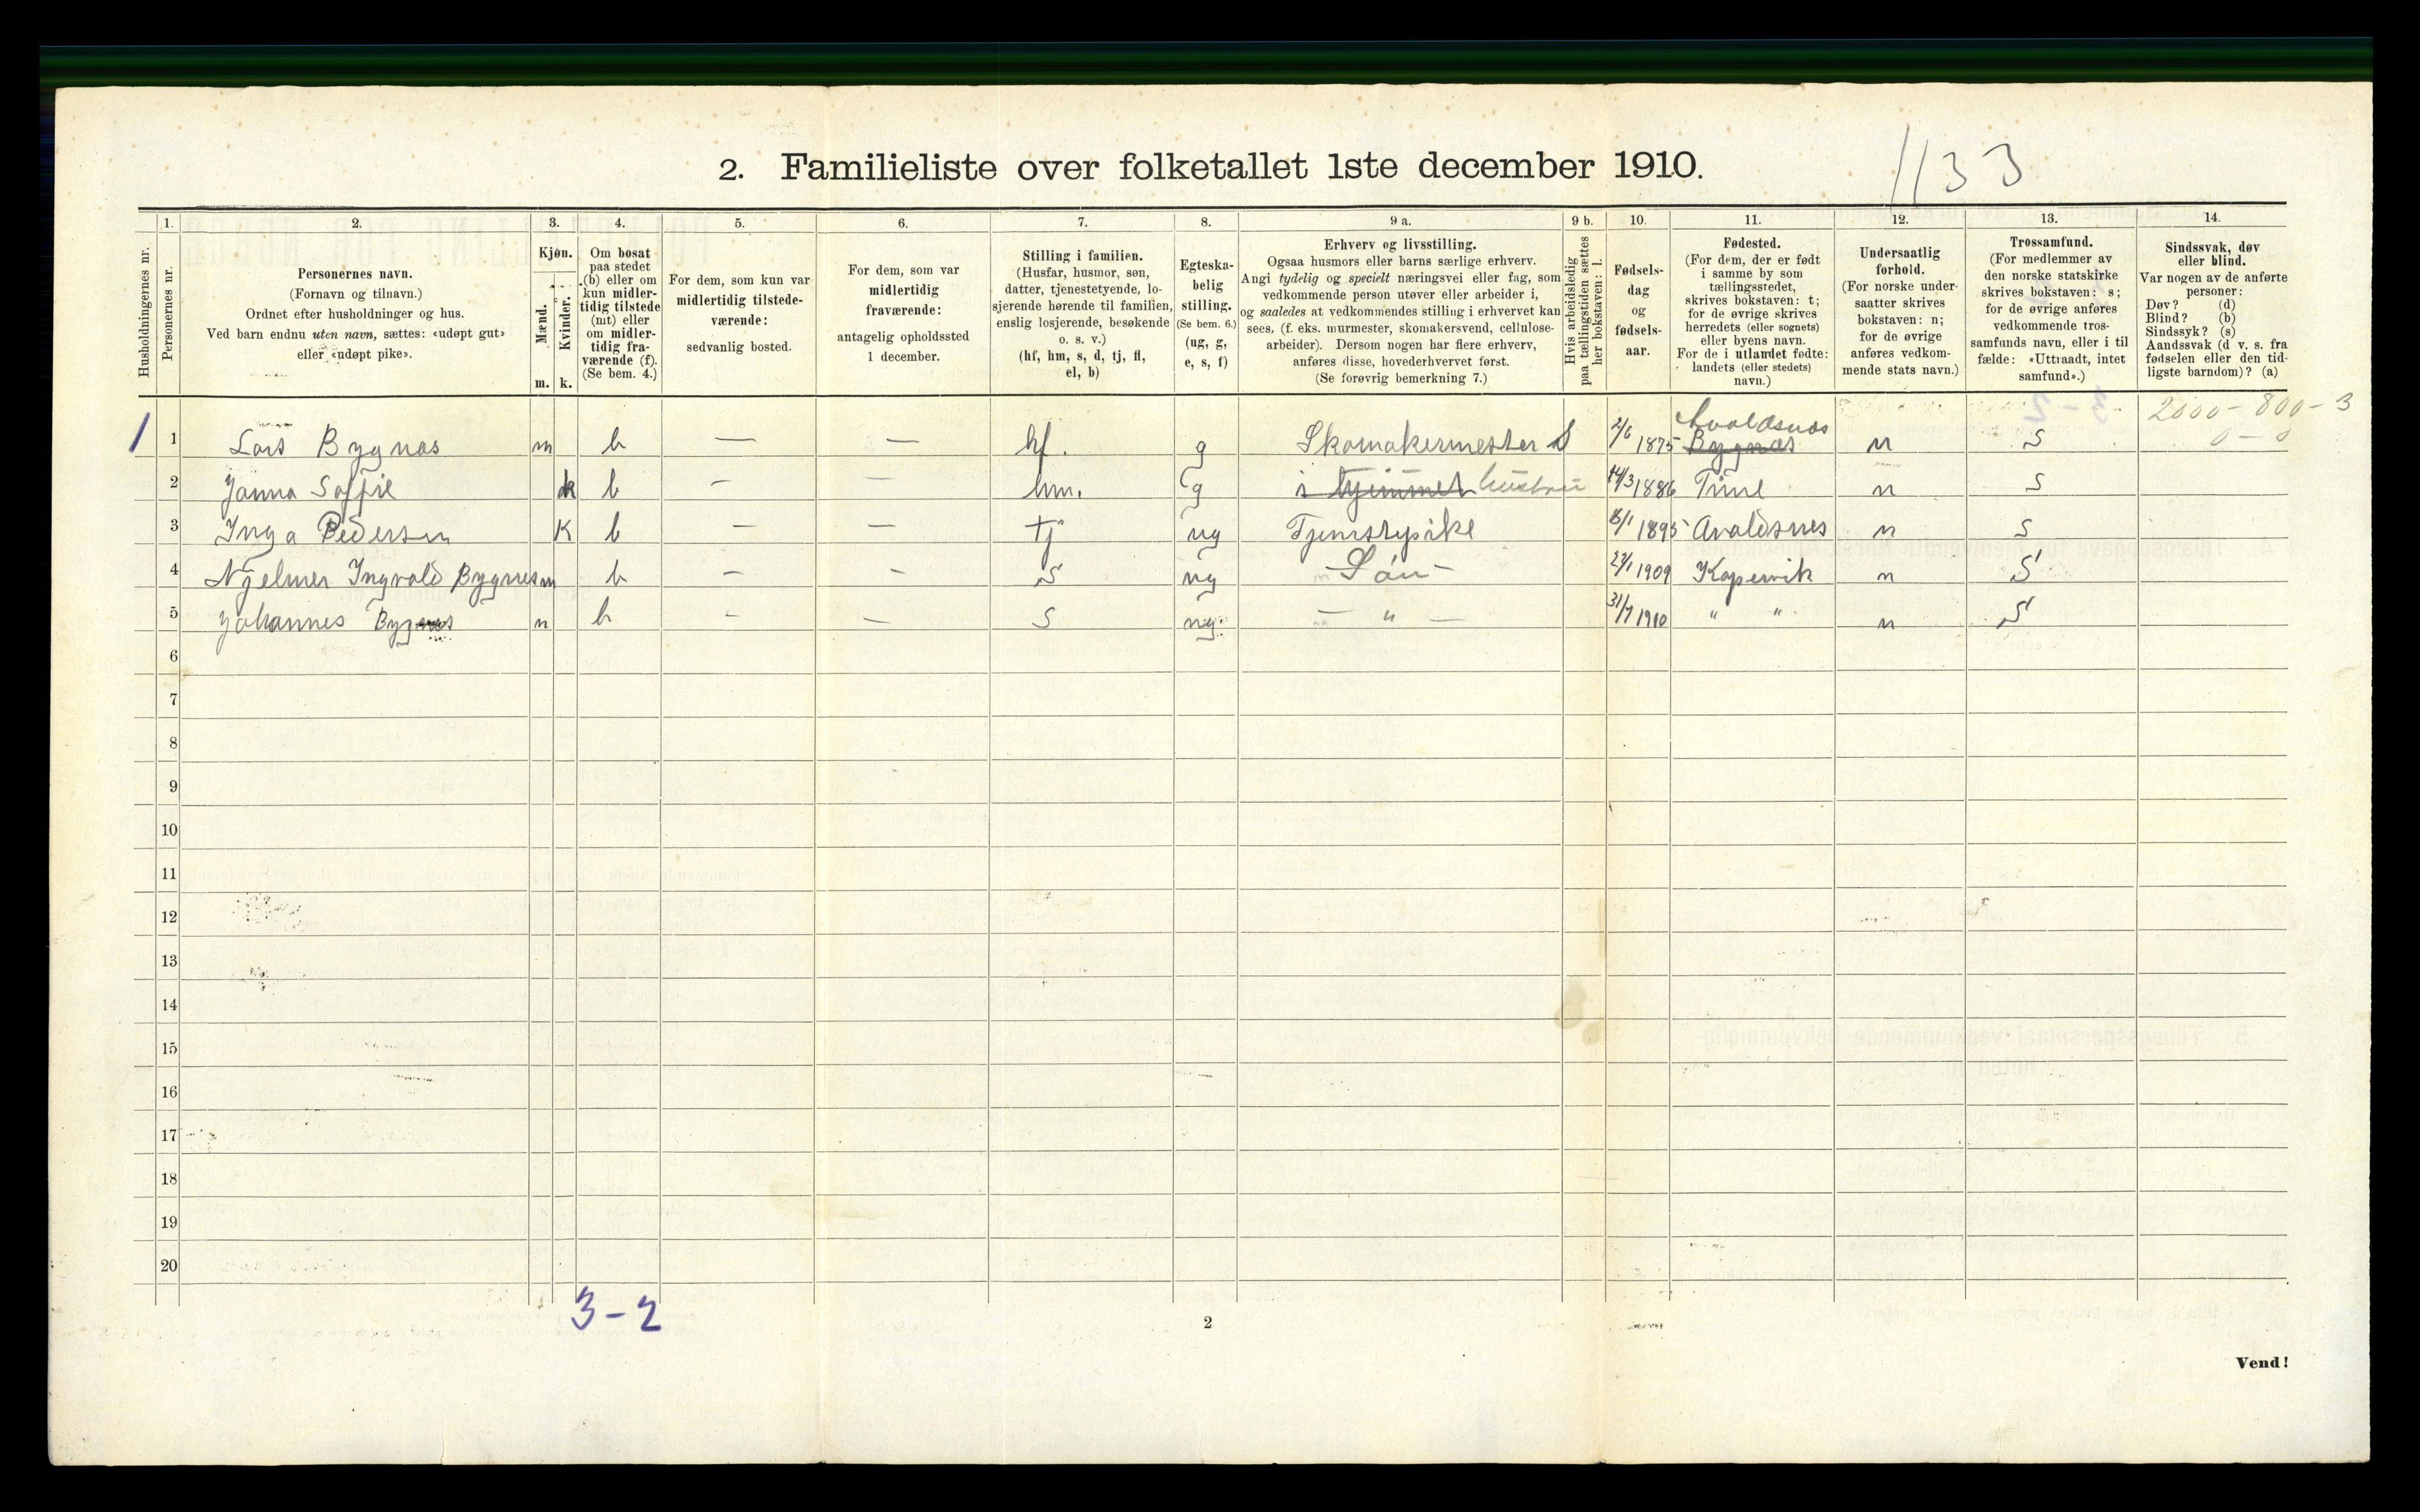 2. Familieliste over folketallet 1ste december 1910.
1133
Husholdningernes nr.
1.
Personernes nr.
2.
Personernes navn.
(Fornavn og tilnavn.)
Ordnet efter husholdninger og hus.
Ved barn endnu uten navn, sættes: «udøpt gut»
eller «udøpt pike».
3.
Kjøn.
Mænd.
Kvinder.
m. k.
4.
Om bosat
paa stedet
(b) eller om
kun midler-
tidig tilstede
(mt) eller
om midler-
tidig fra-
værende (f).
(Se bem. 4.)
5.
For dem, som kun var
midlertidig tilstede-
værende:
sedvanlig bosted.
6.
For dem, som var
midlertidig
fraværende:
antagelig opholdssted
1 december.
7.
Stilling i familien.
(Husfar, husmor, søn,
datter, tjenestetyende, lo-
sjerende hørende til familien,
enslig losjerende, besøkende
o. s. v.)
(hf, hm, s, d, tj, fl,
el, b)
8.
Egteska-
belig
stilling.
(Se bem. 6.)
(ug, g,
e, s, f)
9 a.
Erhverv og livsstilling.
Ogsaa husmors eller barns særlige erhverv.
Angi tydelig og specielt næringsvei eller fag, som
vedkommende person utøver eller arbeider i,
og saaledes at vedkommendes stilling i erhvervet kan
sees, (f. eks. murmester, skomakersvend, cellulose-
arbeider). Dersom nogen har flere erhverv,
anføres disse, hovederhvervet først.
(Se forøvrig bemerkning 7.)
9 b.
Hvis arbeidsledig
paa tællingstiden sættes
her bokstaven: l.
10.
Fødsels-
dag
og
fødsels-
aar.
11.
Fødested.
(For dem, der er født
i samme by som
tællingsstedet,
skrives bokstaven: t;
for de øvrige skrives
herredets (eller sognets)
eller byens navn.
For de i utlandet fødte:
landets (eller stedets)
navn.)
12.
Undersaatlig
forhold.
(For norske under-
saatter skrives
bokstaven: n;
for de øvrige
anføres vedkom-
mende stats navn.)
13.
Trossamfund.
(For medlemmer av
den norske statskirke
skrives bokstaven: s;
for de øvrige anføres
vedkommende tros-
samfunds navn, eller i til
fælde: «Uttraadt, intet
samfund».)
14.
Sindssvak, døv
eller blind.
Var nogen av de anførte
personer:
Døv? (d)
Blind? (b)
Sindssyk? (s)
Aandssvak (d v. s. fra
fødselen eller den tid-
ligste barndom)? (a)
2000 - 800 - 3
0 - 0
Avaldsnes
1 1 Lars Bygnas m b — — hf. g Skomakermester S 2/6 1875 Bygnas n S
2 Janna Soffie k b — — hm. g i hjemmet hustru 14/3 1886 Time n S
3 Inga Pedersen K b — — tj ug Tjenstepike 1895 Avaldsnes n S
4 Hjelmer Ingvald Bygnes m b — — S ug Søn 1909 Kopervik n S
5 Johannes Bygnas m b — — S ug — " — 31/7 1910 " " n S
6
7
8
9
10
11
12
13
14
15
16
17
18
19
20
3 - 2
2
Vend!